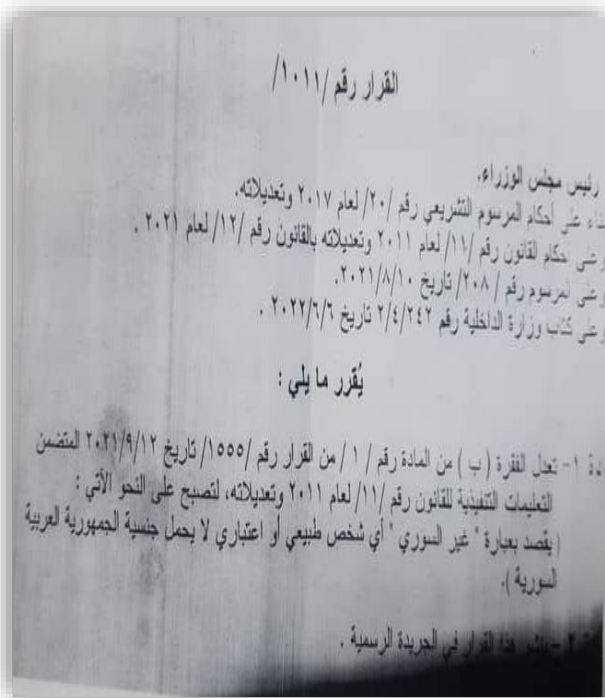 القرار رقم /١٠١١/
رئيس مجلس الوزراء.
بناء على أحكام المرسوم التشريعي رقم /٢٠/ لعام ٢٠١٧ وتعديلاته.
وعلى أحكام القانون رقم /١١/ لعام ٢٠١١ وتعديلاته بالقانون رقم /١٢/ لعام ٢٠٢١ .
وعلى المرسوم رقم /٢٠٨/ تاريخ ٢٠٢١/٨/١٠.
وعلى كتاب وزارة الداخلية رقم ٢/٤/٢٤٢ تاريخ ٢٠٢٢/٦/٦ .
يُقرر ما يلي :
دة ١- تعدل الفقرة ( ب ) من المادة رقم / ١ / من القرار رقم /١٥٥٥/ تاريخ ٢٠٢١/٩/١٢ المتضمن
التعليمات التنفيذية للقانون رقم /١١/ لعام ٢٠١١ وتعديلاته، لتصبح على النحو الآتي :
( يقصد بعبارة " غير السوري " أي شخص طبيعي أو اعتباري لا يحمل جنسية الجمهورية العربية
السورية ).
٢ – ينشر هذا القرار في الجريدة الرسمية .